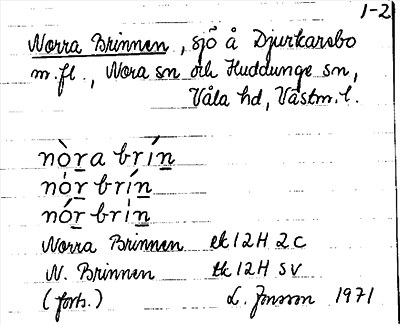 1-2
Norra Brinnen, sjö å Djurkarsbo
m.fl., Nora sn och Huddunge sn,
Våla hd, Västm.l.
nòra brín
nór brín
nór brín
Norra Brinnen ek 12H 2c
N. Brinnen tk 12H SV
(forts.) L. Jonsson 1971